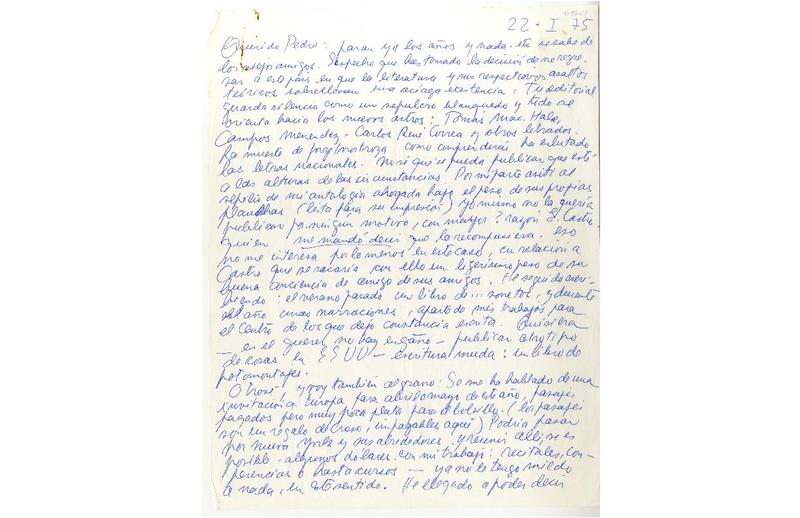 22 · I. 75
Querido Pedro: pasan ya los años y nada, etc se sabe de
los viejos amigos. Sospecho que has tomado la decisión de no regre-
sar a este país en que la literatura y sus respectivos asaltos
teóricos sobrellevan una aciaga existencia. Tu editorial
guarda silencio como un sepulcro blanqueado y todo se
orienta hacia los nuevos astros: Tomás Mac. Hale,
Campos Menéndez - Carlos René Correa y otros letrados.
La muerte de Jorge Inostroza como comprenderás ha enlutado
las letras nacionales. No sé que se pueda publicar que esté
a las alturas de las circunstancias. Por mi parte asistí al
sepelio de mi antología ahogada bajo el peso de sus propias
planchas (lista para su impresión) yo mismo no la quería
publicar por ningún motivo, con mayor? razón E. Castro
quien me mandó decir que la recompusiera. eso
no me interesa por lo menos en este caso, en relación a
Castro que se sacaría con ello un ligerísimo peso de su
buena conciencia de amigo de sus amigos. He seguido escri-
biendo: el verano pasado un libro de... sonetos, y durante
el año unas narraciones, aparte de mis trabajos para
el Centro de los que dejo constancia escrita. Quisiera
— en el querer no hay engaño — publicar otro tipo
de cosas en EEUU — escritura muda: un libro de
fotomontajes.
Otrosí, y voy también al grano: Se me ha hablado de una
invitación a Europa para abril o mayo de este año, pasajes
pagados pero muy poca plata para el bolsillo. (los pasajes
son un regalo de Creso, impagables aquí) Podría pasar
por nueva York y sus alrededores. y reunir allí, si es
posible - algunos dólares. con mi trabajo: recitales, con-
ferencias o hasta cursos — ya no le tengo miedo
a nada, en este sentido. He llegado a poder decir